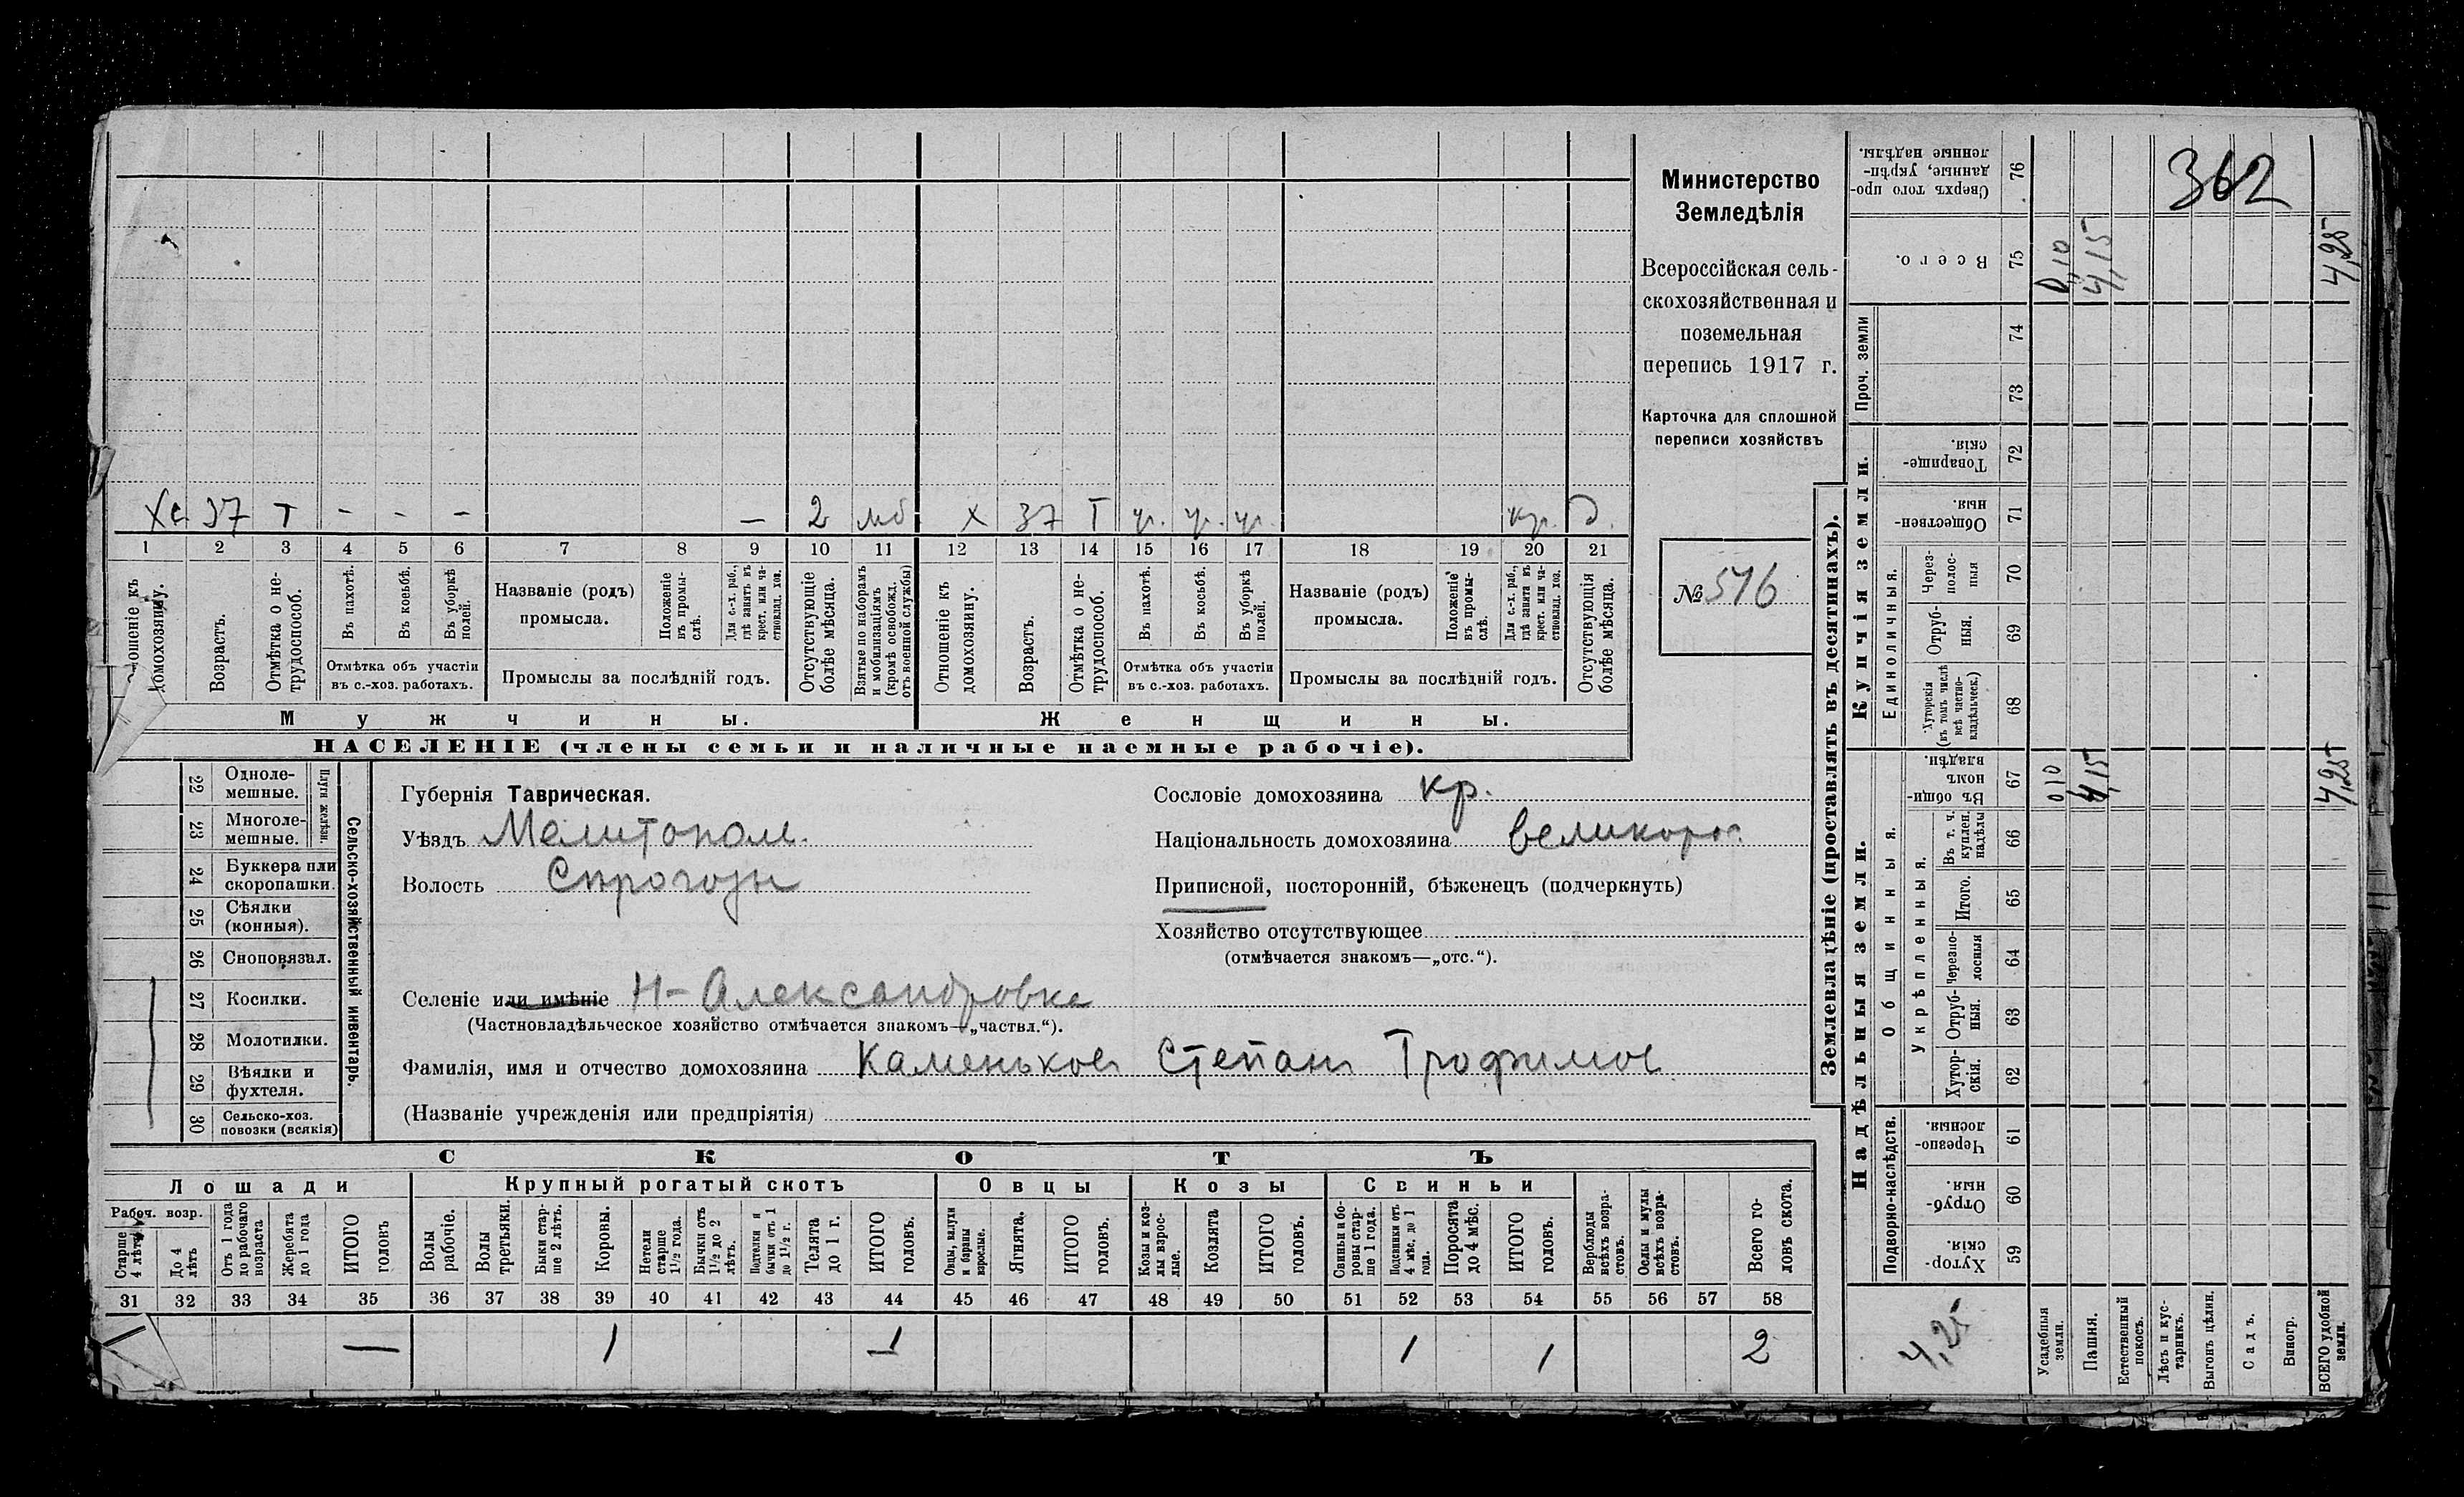 362
Министерство
Земледѣлія
Всероссійская сель-
скохозяйственная и
поземельная
перепись 1917 г.
Карточка для сплошной
переписи хозяйствъ
№ 516
Хс 37 Т - - - — 2 мб Х 37 Т чр. чр. чр. кр. д.
1 2 3 4 5 6 7 8 9 10 11 12 13 14 15 16 17 18 19 20 21
Отношеніе къ домохозяину.
Возрастъ.
Отмѣтка о не-трудоспособ.
Въ пахотѣ.
Въ косьбѣ.
Въ уборкѣ полей.
Отмѣтка объ участіи
въ с.-хоз. работахъ.
Названіе (родъ)
промысла.
Положеніе въ промы-слѣ.
Для с.-х. раб., гдѣ занятъ въ крест. или ча-стновлад. хоз.
Промыслы за послѣдній годъ.
Отсутствующіе болѣе мѣсяца.
Взятые по наборамъ и мобилизаціямъ (кромѣ освобожд. отъ военной службы)
Отношеніе къ домохозяину.
Возрастъ.
Отмѣтка о не-трудоспособ.
Въ пахотѣ.
Въ косьбѣ.
Въ уборкѣ полей.
Отмѣтка объ участіи
въ с.-хоз. работахъ.
Названіе (родъ)
промысла.
Положеніе въ промы-слѣ.
Для с.-х. раб., гдѣ заняти въ крест. или ча-стновлад. хоз.
Промыслы за послѣдній годъ.
Отсутствующія болѣе мѣсяца.
Мужчины. Женщины.
НАСЕЛЕНІЕ (члены семьи и наличные наемные рабочіе).
Сельско-хозяйственный инвентарь.
Плуги желѣзн.
22 Одноле-мешные.
23 Многоле-мешные.
24 Буккера или скоропашки.
25 Сѣялки (конныя).
26 Сноповязал.
27 Косилки.
28 Молотилки.
29 Вѣялки и фухтеля.
30 Сельско-хоз. повозки (всякія)
Губернія Таврическая.
Уѣздъ Мелитопол.
Волость
Сословіе домохозяина кр.
Національность домохозяина великорос.
Приписной, посторонній, бѣженецъ (подчеркнуть)
Хозяйство отсутствующее
(отмѣчается знакомъ—„отс.“).
Селеніе или имѣніе Н-Александровка
(Частновладѣльческое хозяйство отмѣчается знакомъ—„частвл.“).
Фамилія, имя и отчество домохозяина Каменьков Степан Трофимов
(Названіе учрежденія или предпріятія)
СКОТЪ
Лошади Крупный рогатый скотъ Овцы Козы Свиньи
Рабоч. возр.
Старше 4 лѣтъ
До 4 лѣтъ
Отъ 1 года до рабочаго возраста
Жеребята до 1 года
ИТОГО головъ
Волы рабочіе.
Волы третьяки.
Быки стар-ше 2 лѣтъ.
Коровы.
Нетели старше 1½ года.
Бычки отъ 1½ до 2 лѣтъ.
Подтелки и бычки отъ 1 до 1½ г.
Телята до 1 г.
ИТОГО головъ.
Овцы, валухи и бараны взрослые.
Ягнята.
ИТОГО головъ.
Козы и коз-лы взрос-лые.
Козлята
ИТОГО головъ.
Свиньи и бо-ровы стар-ше 1 года.
Подсвинки отъ 4 мѣс. до 1 года.
Поросята до 4 мѣс.
ИТОГО головъ.
Верблюды всѣхъ возра-стовъ.
Ослы и мулы всѣхъ возра-стовъ.
Всего го-ловъ скота.
31 32 33 34 35 36 37 38 39 40 41 42 43 44 45 46 47 48 49 50 51 52 53 54 55 56 57 58
— 1 1 1 1 2
Землевладѣніе (проставлять въ десятинахъ).
Купчія земли.
Надѣльныя земли.
Сверхъ того про-данные, укрѣп-ленные надѣлы. 76
Всего. 75 0,10 4,15 4,25
Проч. земли 74 73
Товарище-скія. 72
Обществен-ныя. 71
Единоличныя.
Через-полос-ныя 70
Отруб-ныя. 69
Хуторскія (въ томъ числѣ всѣ частно-владѣльческ.) 68
Общинныя.
Въ общин-номъ владѣн. 67 010 4,15 4,25
Укрѣпленныя.
Въ т. ч. куплен. надѣлы 66
Итого. 65
Черезпо-лосныя 64
Отруб-ныя. 63
Хутор-скія. 62
Подворно-наслѣдств.
Черезпо-лосныя. 61
Отруб-ныя. 60
Хутор-скія. 59
4,25
Усадебныя земли.
Пашня.
Естественный покосъ.
Лѣсъ и кус-тарникъ.
Выгонъ цѣлин.
Садъ.
Виногр.
ВСЕГО удобной земли.